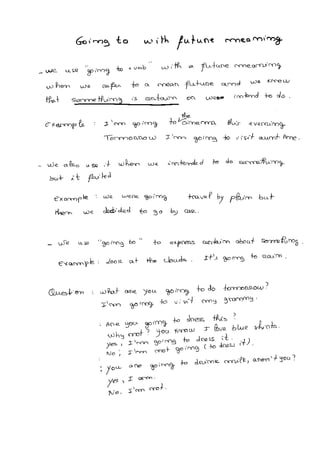 Going to with future meaning
- we use "going to + verb" with a future meaning
when we refer to a mean future and we know
that something is certain or we intend to do.
example : I'm going to the cinema this evening.
Tomorrow I'm going to visit aunt Anne.
- we also use it when we intended to do something
but it failed
example : we were going travel by plain but
then we decided to go by car.
- we use "going to" to express certain about something.
example : look at the clouds. It's going to rain.
Question : what are you going to do tomorrow?
I'm going to visit my granny.
: Are you going to dress this ?
Why not ? you know I love blue shirts.
yes, I'm going to dress it.
No, I'm not going (to dress it).
: you are going to drink milk, aren't you?
yes, I am.
No. I'm not.